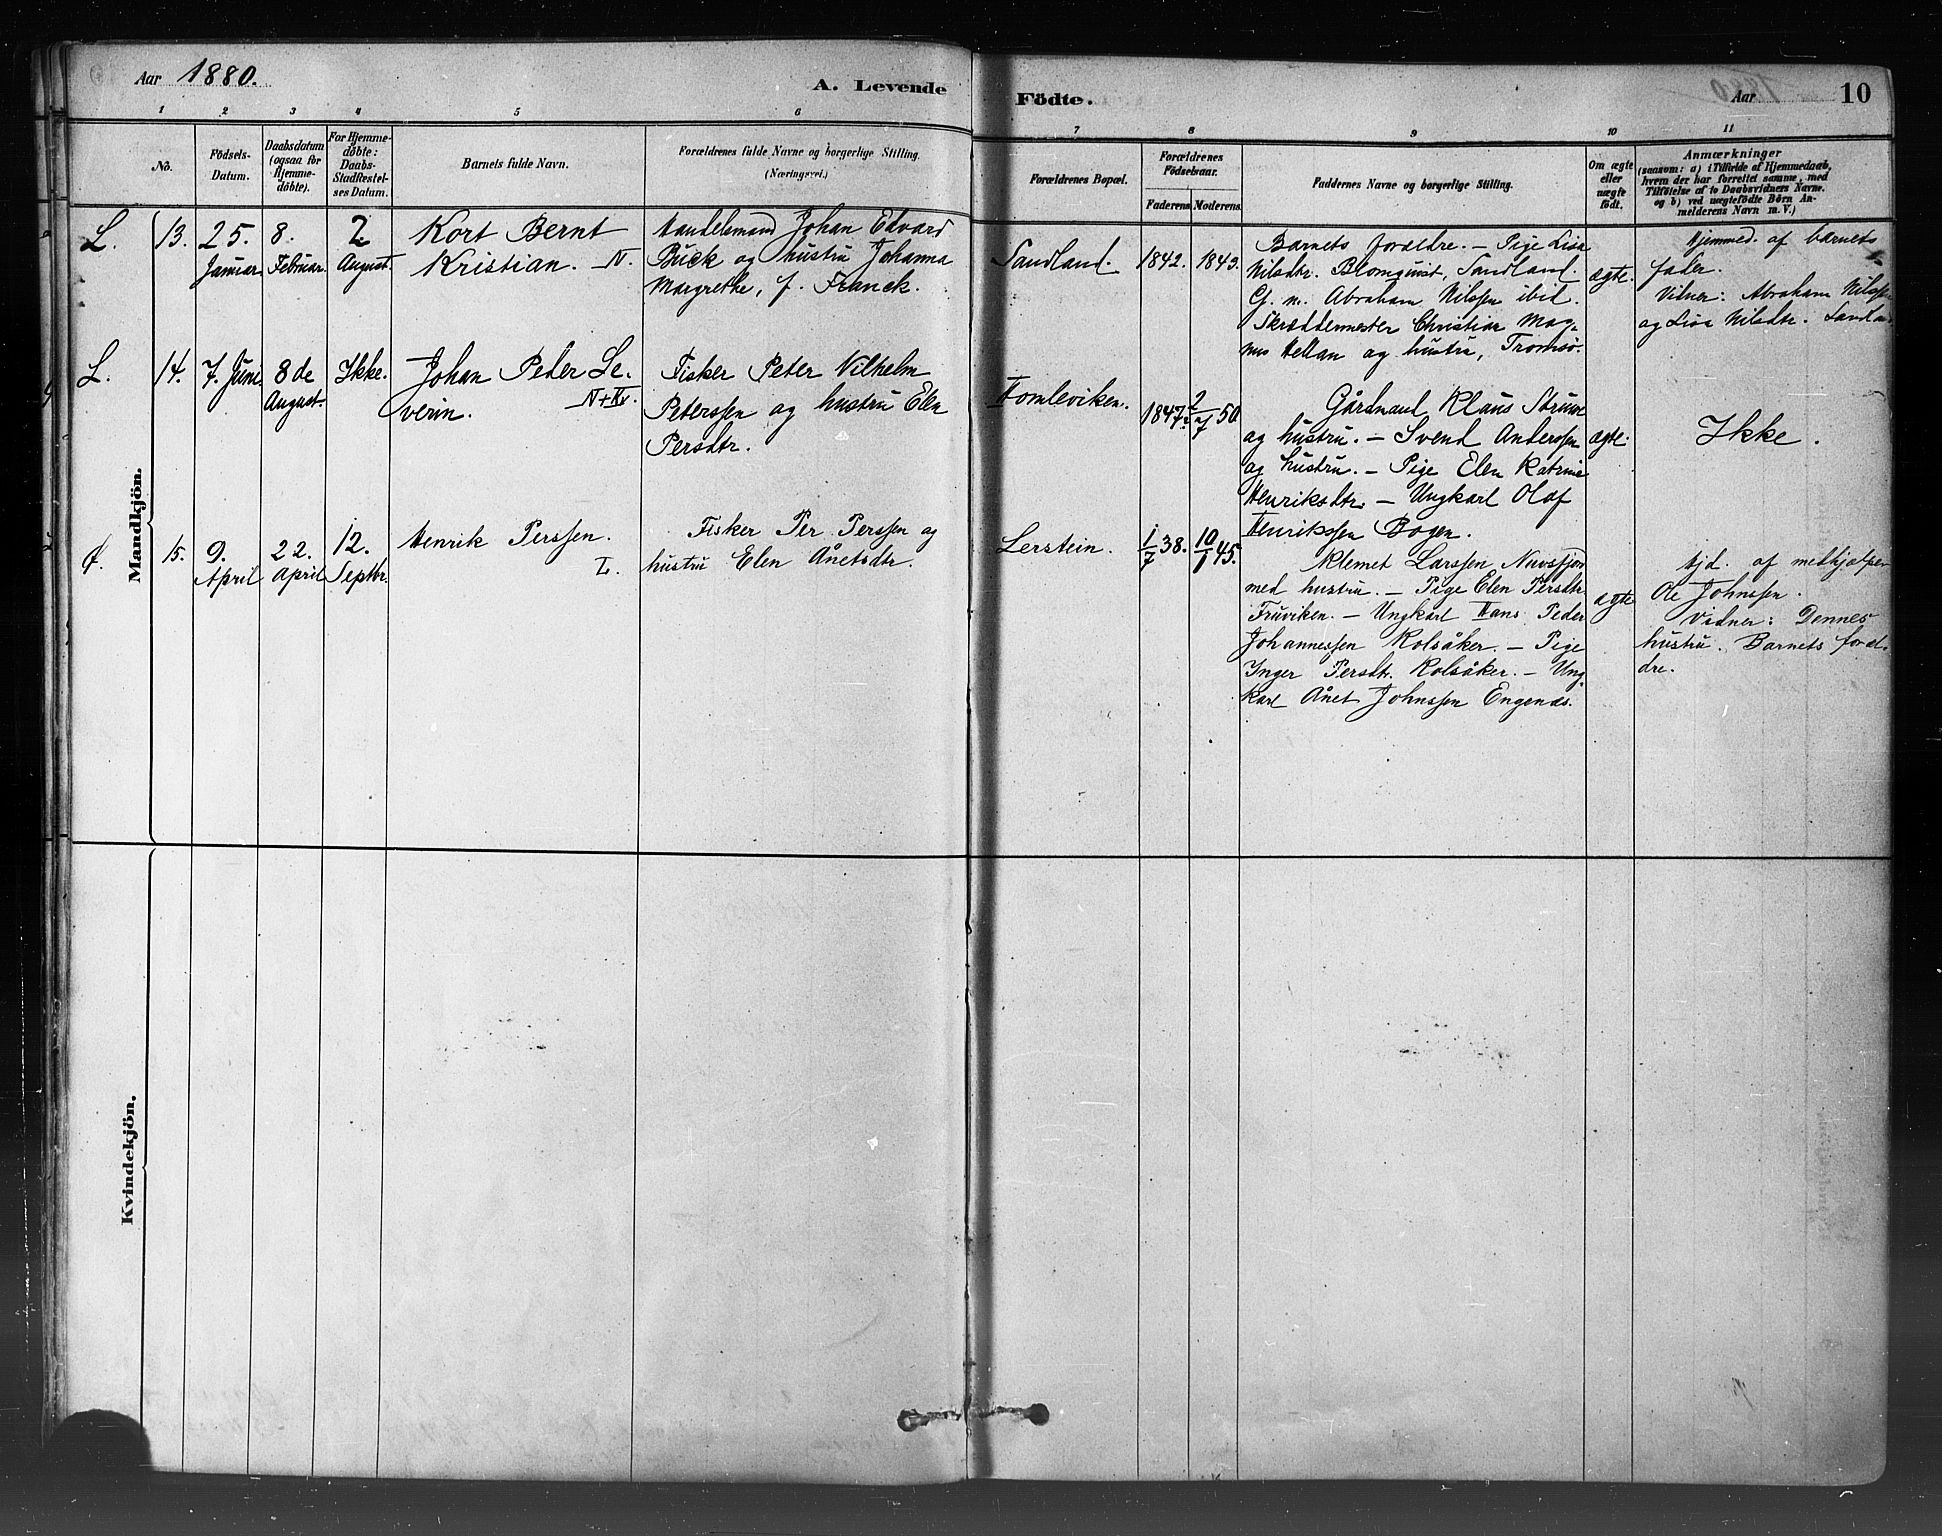 Aar 1880.
A. Levende Födte.
Aar
10
1 2 3 4 5 6 7 8 9 10 11
No.
Födsels-
Datum.
Daabsdatum
(ogsaa for
Hjemme-
döbte).
For Hjemme-
döbte:
Daabs-
Stadfæstel-
ses Datum.
Barnets fulde Navn.
Forældrenes fulde Navne og borgerlige Stilling.
(Næringsvei.)
Forældrenes Bopæl.
Forældrenes
Födselsaar.
Faderens Moderens
Faddernes Navne og borgerlige Stilling.
Om ægte
eller
uægte
födt.
Anmærkninger
(saasom: a) i Tilfælde af Hjemmedaab,
hvem der har forrettet samme, med
Tilföielse af to Daabsvidners Navne.
og b) ved uægtefödte Börn An-
melderens Navn m. V.)
Mandkjön.
L. 13. 25. Januar
8. Februar
2 August.
Kort Bernt
Kristian. N.
Handelsmand Johan Edvard
Buck og hustru Johanna
Margrethe, f. Franck.
Sandland.
1842. 1843.
Barnets forældre. – Pige Lisa
Nilsdtr. Blomquist, Sandland.
G. m. Abraham Nilssen ibid.
Skræddermester Christian Mag-
nus Hellan og hustru, Tromsö.
ægte.
Hjemmed. af barnets
fader.
Vidner: Abraham Nilssen
og Lisa Nilsdtr. Sandland
L. 14. 7. Juni
8de August.
Ikke.
Johan Peder Se-
verin. N+Kv.
Fisker Peter Vilhelm
Peterssen og hustru Elen
Persdtr.
Tomleviken.
1847. 2/7 50
Gårdmand Klaus Struve
og hustru. – Svend Anderssen
og hustru. – Pige Elen Katrine
Henriksdtr. – Ungkarl Olaf
Henrikssen Bogen.
ægte.
Ikke.
15. 9. April
22. April
12. Septbr.
Henrik Perssen.
L.
Fisker Per Perssen og
hustru Elen Ånetsdtr.
Lerstein.
1/7 38. 10/1 45.
Klemet Larssen Nuvsfjord
med hustru. – Pige Elen Persdtr.
Fruviken. – Ungkarl Hans Peder
Johannessen Kolsåker. – Pige
Inger Persdtr. Kolsåker. – Ung-
karl Ånet Johnssen Engenæs.
ægte
Hjd. af medhjælper
Ole Johnssen.
Vidner: Dennes
hustru. Barnets foræl-
dre.
Kvindekjön.